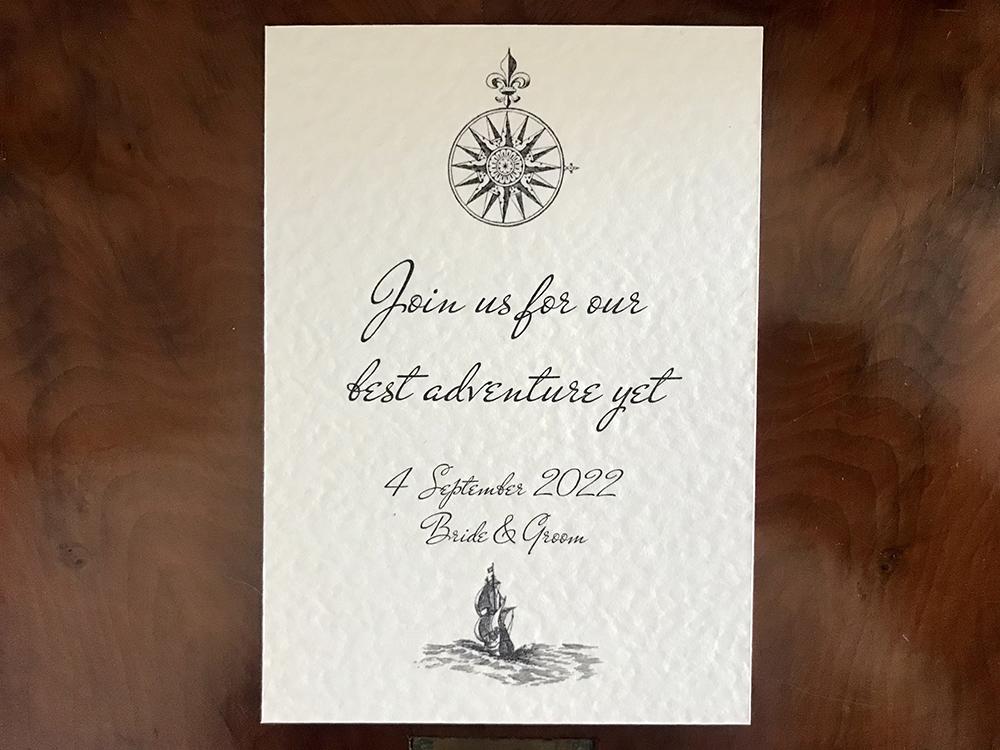 Join us for our
best adventure yet
4 September 2022
Bride & Groom